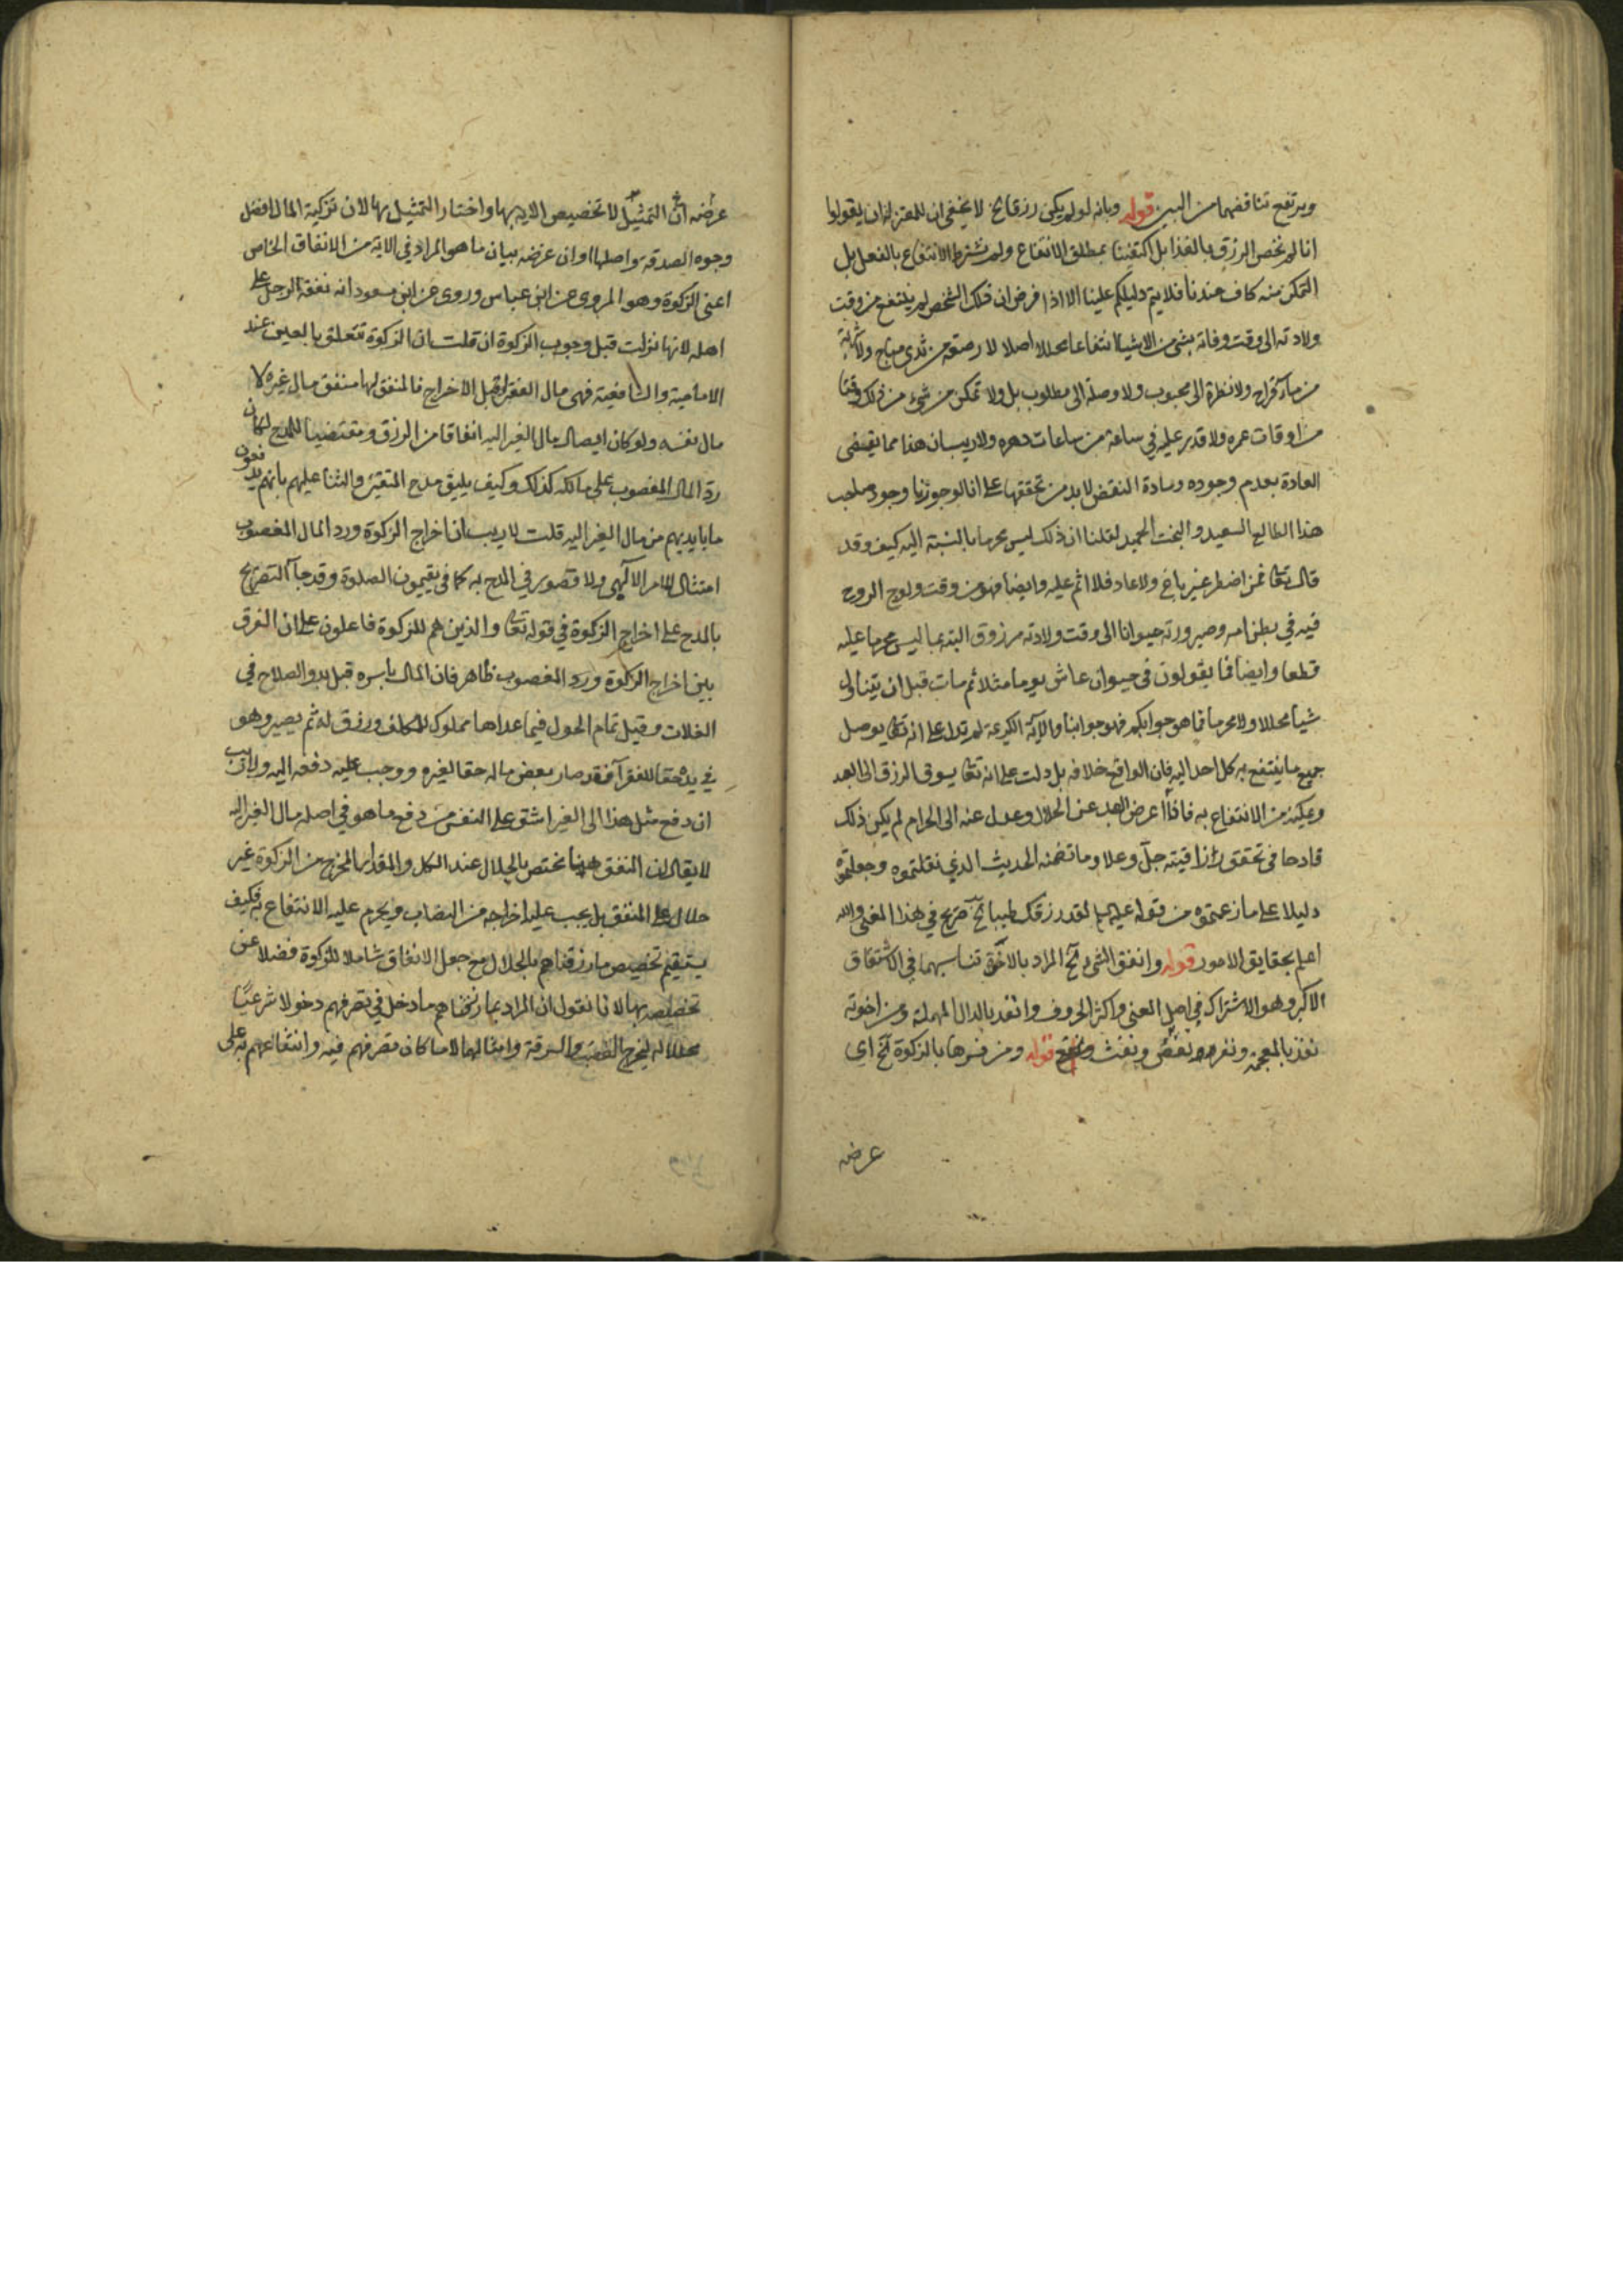 ويرتفع تناقضهما من البين قوله وبانه لو لم يكن رزقا الخ لا يخفى ان للمعتزلة ان يقولوا
انا لم نخص الرزق بالغذا بل اكتفينا بمطلق الانتفاع ولم نشترط الانتفاع بالفعل بل
التمكن منه كاف عندنا فلا يتم دليلكم علينا الا اذا فرض ان ذلك الشخص لم ينتفع من وقت
ولادته الى وقت وفاته بشي من الاشيا انتفاعا محللا اصلا لا رضعة من ثدي مباح ولا شربة
من ماء قراح ولا نظرة الى محبوب ولا وصلة الى مطلوب بل ولا تمكن من شيء من ذلك وقتا
من اوقات عمره ولا قدر عليه في ساعة من ساعات دهره ولا ريب ان هذا مما يقضى
العادة بعدم وجوده ومادة النقض لا بد من تحققها على انا لو جوزنا وجود صاحب
هذا الطالع السعيد والبخت الحميد لقلنا ان ذلك ليس محرما بالنسبة اليه كيف وقد
قال تعا فمن اضطر غير باغ ولا عاد فلا اثم عليه وايضا فهو من وقت ولوج الروح
فيه في بطن امه وصيرورته حيوانا الى وقت ولادته مرزوق البتة بما ليس محرما عليه
قطعا وايضا فما يقولون في حيوان عاش يوما مثلا ثم مات قبل ان يتناول
شيا محللا ولا محرما فما هو جوابكم فهو جوابنا والاية الكريمة لم تدل على انه تعا يوصل
جميع ما ينتفع به كل احد اليه فان الواقع خلافه بل دلت على انه تعا يسوق الرزق الى العبد
ويمكنه من الانتفاع به فاذا اعرض العبد عن الحلال وعدل عنه الى الحرام لم يكن ذلك
قادحا في تحقق رازاقيته جل وعلا وما تضمنه الحديث الذي نقلتموه وجعلتموه
دليلا على ما زعمتموه من قوله عليه لقد رزقك طيبا الخ صريح في هذا المعنى والله
اعلم بحقايق الامور قوله وانفق الشي الخ المراد بالاخوة تناسبهما في الاشتقاق
الاكبر وهو الاشتراك في اصل المعنى واكثر الحروف وانفد بالدال المهملة ومن اخوته
نفذ بالمعجمة ونفر ونفض ونفث قوله ومن فسرها بالزكوة الخ اي
عرضه
عرضه التمثيل لا تخصيص الاية بها واختار التمثيل بها لان تزكية المال افضل
وجوه الصدقة واصلها او ان عرضه بيان ما هو المراد في الاية من الانفاق الخاص
اعنى الزكوة وهو المروى عن ابن عباس وروى عن ابن مسعود انه نفقة الرجل على
اهله لانها نزلت قبل وجوب الزكوة ان قلت ان الزكوة تتعلق بالعين عند
الامامية والشافعية فهى مال الفقرا قبل الاخراج فالمنفق لها منفق مال غيره لا
مال نفسه ولو كان ايصال مال الغير اليه انفاقا من الرزق ومقتضيا للمدح لكان
رد المال المغصوب على مالكه كذلك وكيف يليق مدح المتقين والثنا عليهم بانهم يدفعون
ما بايديهم من مال الغير اليه قلت لا ريب ان اخراج الزكوة ورد المال المغصوب
امتثال للامر الالهى ولا قصور في المدح به كما في يقيمون الصلوة وقد جآ التصريح
بالمدح على اخراج الزكوة في قوله تعا والذين هم للزكوة فاعلون على ان الفرق
بين اخراج الزكوة ورد المغصوب ظاهر فان المال باسره قبل بدو الصلاح في
الغلات وقبل تمام الحول فيما عداها مملوك للمكلف ورزق له ثم يصير وهو
في يده حقا للفقرآ فقد صار بعض ماله حقا لغيره ووجب عليه دفعه اليه ولا ريب
ان دفع مثل هذا الى الغير اشق على النفس من دفع ما هو في اصله مال الغير اليه
لا يقال ان المنفق ههنا يختص بالحلال عند الكل والمقدار المخرج من الزكوة غير
حلال على المنفق بل يجب عليه اخراجه من النصاب ويحرم عليه الانتفاع به فكيف
يستقيم تخصيص ما رزقناهم بالحلال مع جعل الانفاق شاملا للزكوة فضلا عن
تخصيصه بها لانا نقول ان المراد بما رزقناهم ما دخل في تصرفهم دخولا شرعيا
محللا له ليخرج الغصب والسرقة وامثالهما لا ما كان تصرفهم فيه وانتفاعهم به على